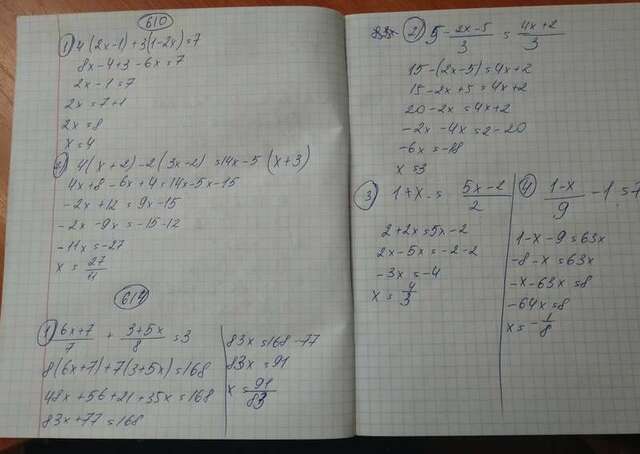 610
1) 4(2x-1)+3(1-2x)=7
8x-4+3-6x=7
2x-1=7
2x=7+1
2x=8
x=4
2) 4(x+2)-2(3x-2)=14x-5(x+3)
4x+8-6x+4=14x-5x-15
-2x+12=9x-15
-2x-9x=-15-12
-11x=-27
x=27/11
614
1) (6x+7)/7 + (3+5x)/8 = 3
8(6x+7)+7(3+5x)=168
48x+56+21+35x=168
83x+77=168
83x=168-77
83x=91
x=91/83
2) 5-(2x-5)/3 = (4x+2)/3
15-(2x-5)=4x+2
15-2x+5=4x+2
20-2x=4x+2
-2x-4x=2-20
-6x=-18
x=3
3) 1+x = (5x-2)/2
2+2x=5x-2
2x-5x=-2-2
-3x=-4
x=4/3
4) (1-x)/9 - 1=7
1-x-9=63x
-8-x=63x
-x-63x=8
-64x=8
x=-1/8